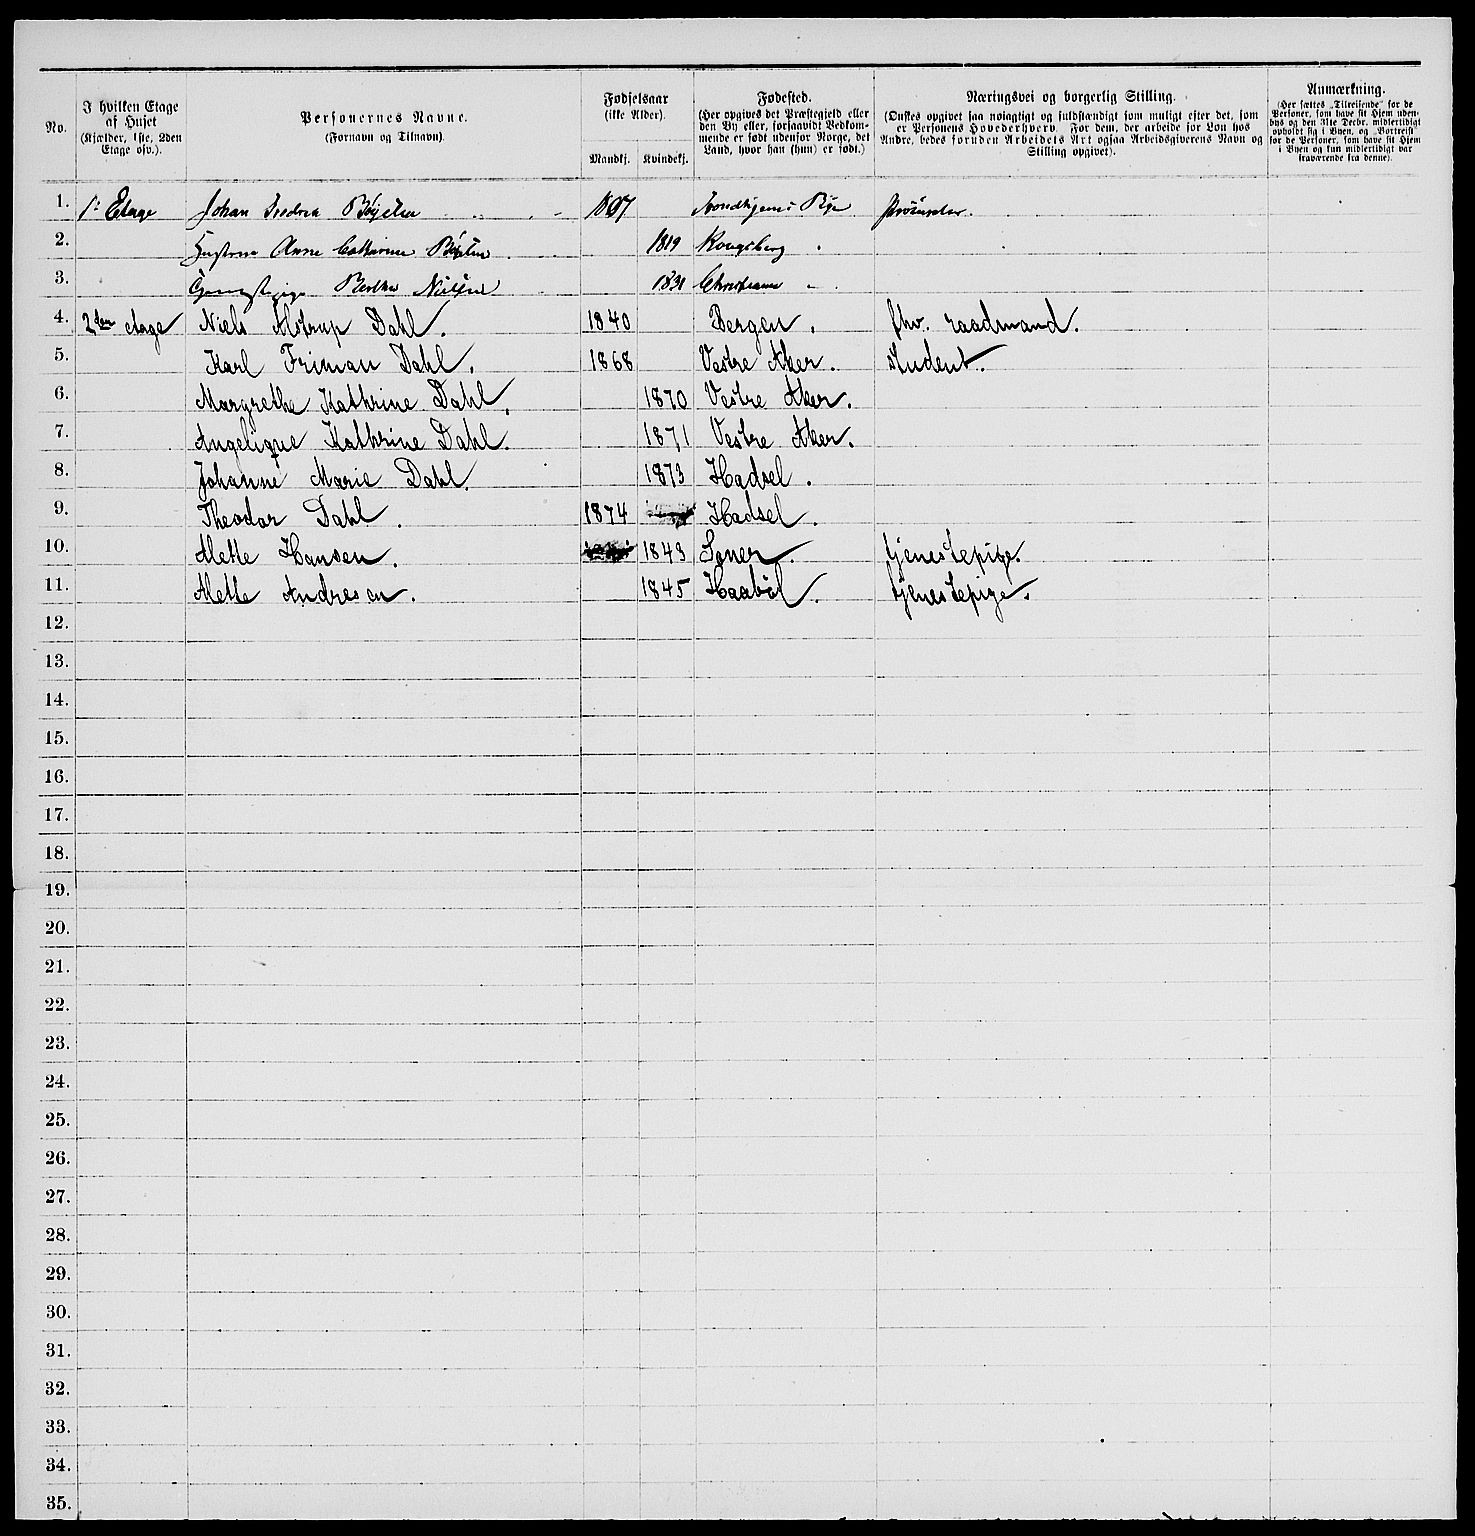 No.
I hvilken Etage
af Huset
(Kjælder, 1ste, 2den
Etage osv.).
Personernes Navne.
(Fornavn og Tilnavn).
Fødselsaar
(ikke Alder).
Mandkj. Kvindekj.
Fødested.
(Her opgives det Præstegjeld eller
den By eller, forsaavidt Vedkom-
mende er født udenfor Norge, det
Land, hvor han (hun) er født.)
Næringsvei og borgerlig Stilling.
(Ønskes opgivet saa nøiagtigt og fuldstændigt som muligt efter det, som
er Personens Hovederhverv. For dem, der arbeide for Løn hos
Andre, bedes foruden Arbeidets Art ogsaa Arbeidsgiverens Navn og
Stilling opgivet).
Anmærkning.
(Her sættes „Tilreisende" for de
Personer, som have sit Hjem uden-
bys og den 31te Decbr. midlertidigt
opholdt sig i Byen, og „Bortreist"
for de Personer, som have sit Hjem
i Byen og kun midlertidigt var
fraværende fra denne).
1. 1: Etage Johan 1807
2. Hustrue Anne Cathrine 1819 Kongsberg
3. Berthe Nielsen 1831 Christiania
4. 2den etage Niels Alstrup Dahl. 1840 Bergen. fhv. raadmand.
5. Karl Friman Dahl. 1868 Vestre Aker. student.
6. Margrethe Kathrine Dahl. 1870 Vestre Aker.
7. Angelique Kathrine Dahl. 1871 Vestre Aker.
8. Johanne Marie Dahl. 1873 Hadsel.
9. Theodor Dahl. 1874 Hadsel.
10. Mette Hansen. 1843 Soner. tjenestepige.
11. Mette Andresen. 1845 Haabøl. tjenestepige.
12.
13.
14.
15.
16.
17.
18.
19.
20.
21.
22.
23.
24.
25.
26.
27.
28.
29.
30.
31.
32.
33.
34.
35.